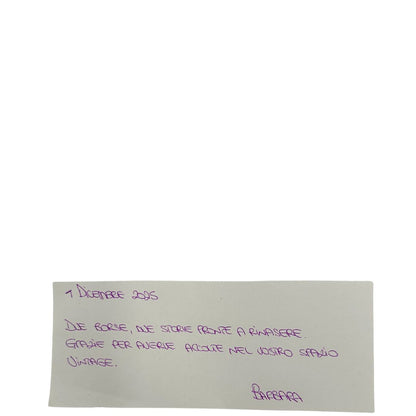 1 DICEMBRE 2025
DUE BORSE, DUE STORIE PRONTE A RINASCERE.
GRAZIE PER AVERLE ACCOLTE NEL VOSTRO SPAZIO
VINTAGE.
BARBARA